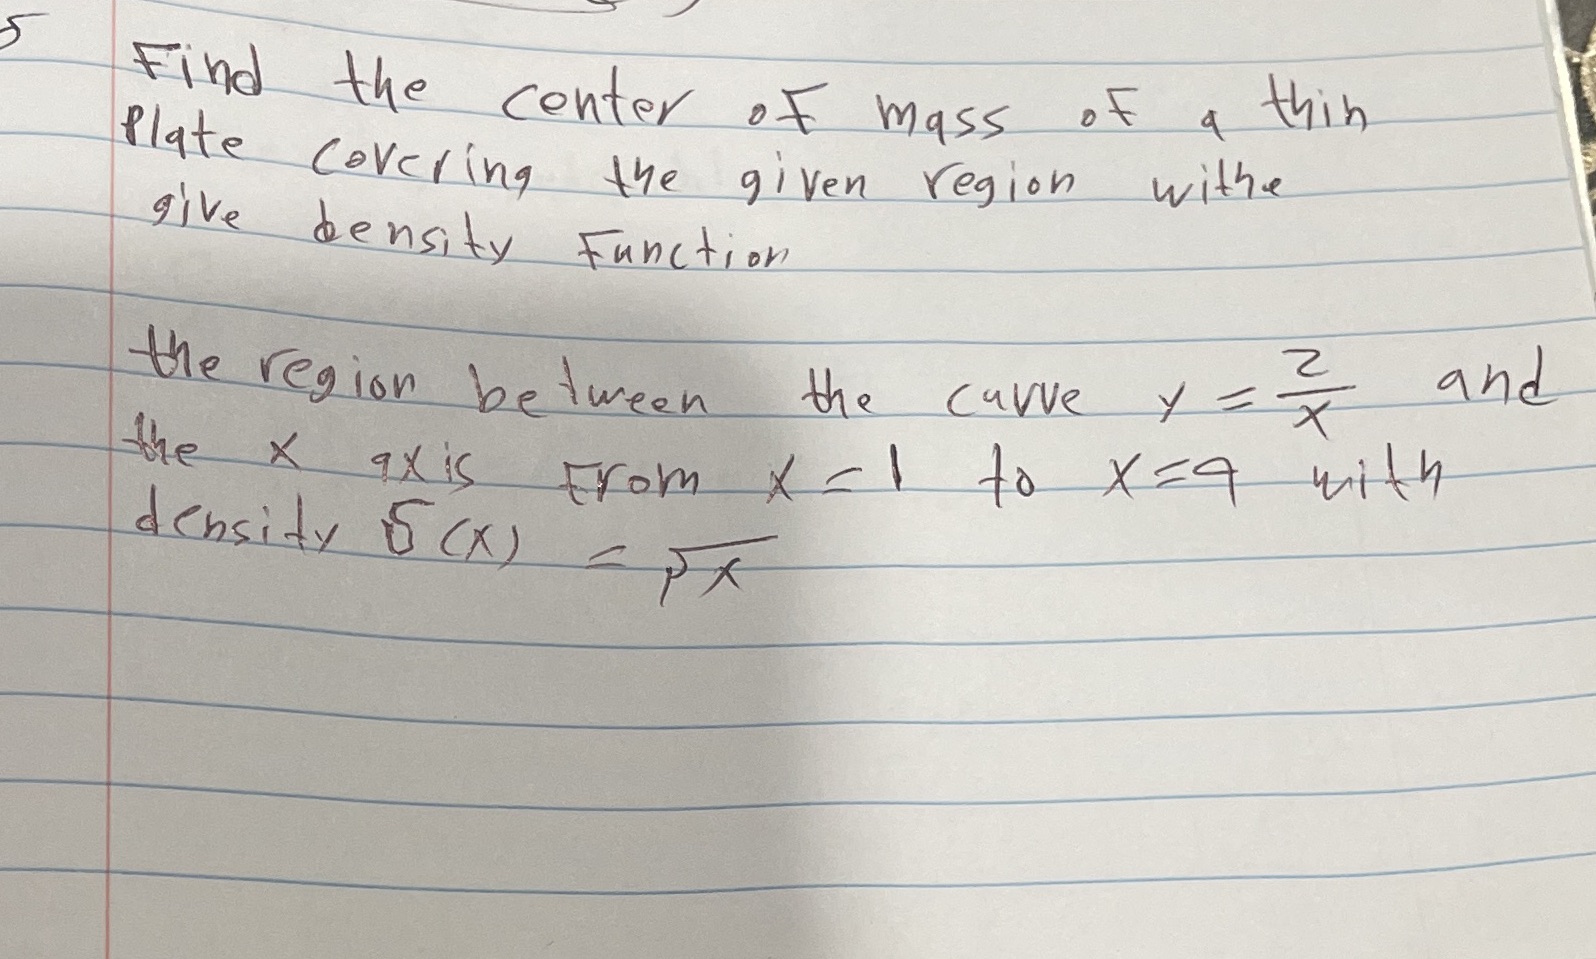 5
Find the center of mass of a thin
Plate covering the given region withe
give density Function
the region between the curve y = 2/x and
the x axis From x = 1 to x = 9 with
density δ(x) = √x